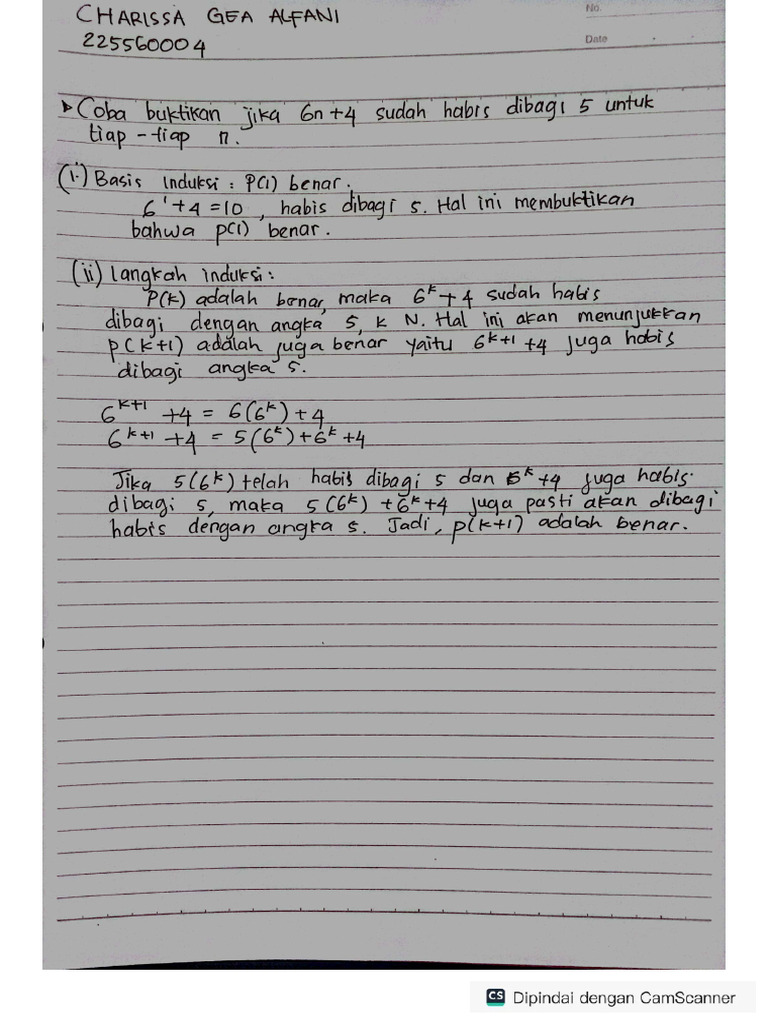 CHARISSA GEA ALFANI
225560004
No.
Date
Coba buktikan jika 6n+4 sudah habis dibagi 5 untuk
tiap-tiap n.
(i.) Basis Induksi : P(1) benar.
6¹+4=10, habis dibagi 5. Hal ini membuktikan
bahwa p(1) benar.
(ii) Langkah induksi:
P(k) adalah benar, maka 6ᵏ+4 sudah habis
dibagi dengan angka 5, k N. Hal ini akan menunjukkan
p(k+1) adalah juga benar yaitu 6ᵏ⁺¹+4 juga habis
dibagi angka 5.
6ᵏ⁺¹ +4 = 6(6ᵏ)+4
6ᵏ⁺¹ +4 = 5(6ᵏ)+6ᵏ+4
Jika 5(6ᵏ) telah habis dibagi 5 dan 6ᵏ+4 juga habis
dibagi 5, maka 5(6ᵏ)+6ᵏ+4 juga pasti akan dibagi
habis dengan angka 5. Jadi, p(k+1) adalah benar.
CS Dipindai dengan CamScanner